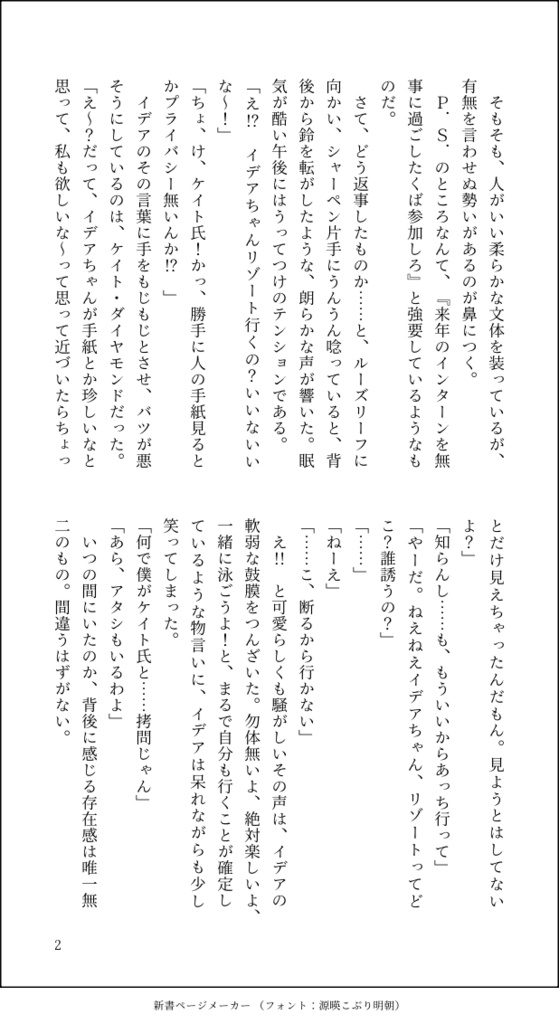 そもそも、人がいい柔らかな文体を装っているが、
有無を言わせぬ勢いがあるのが鼻につく。
　Ｐ．Ｓ．のところなんて、『来年のインターンを無
事に過ごしたくば参加しろ』と強要しているようなも
のだ。
　さて、どう返事したものか……と、ルーズリーフに
向かい、シャーペン片手にうんうん唸っていると、背
後から鈴を転がしたような、朗らかな声が響いた。眠
気が酷い午後にはうってつけのテンションである。
「え!?　イデアちゃんリゾート行くの？いいないい
な～！」
「ちょ、け、ケイト氏！かっ、勝手に人の手紙見ると
かプライバシー無いんか!?　」
　イデアのその言葉に手をもじもじとさせ、バツが悪
そうにしているのは、ケイト・ダイヤモンドだった。
「え～？だって、イデアちゃんが手紙とか珍しいなと
思って、私も欲しいな～って思って近づいたらちょっ
とだけ見えちゃったんだもん。見ようとはしてない
よ？」
「知らんし……も、もういいからあっち行って」
「やーだ。ねえねえイデアちゃん、リゾートってど
こ？誰誘うの？」
「……」
「ねーえ」
「……こ、断るから行かない」
　え!!　と可愛らしくも騒がしいその声は、イデアの
軟弱な鼓膜をつんざいた。勿体無いよ、絶対楽しいよ、
一緒に泳ごうよ！と、まるで自分も行くことが確定し
ているような物言いに、イデアは呆れながらも少し
笑ってしまった。
「何で僕がケイト氏と……拷問じゃん」
「あら、アタシもいるわよ」
　いつの間にいたのか、背後に感じる存在感は唯一無
二のもの。間違うはずがない。
2
新書ページメーカー（フォント：源暎こぶり明朝）